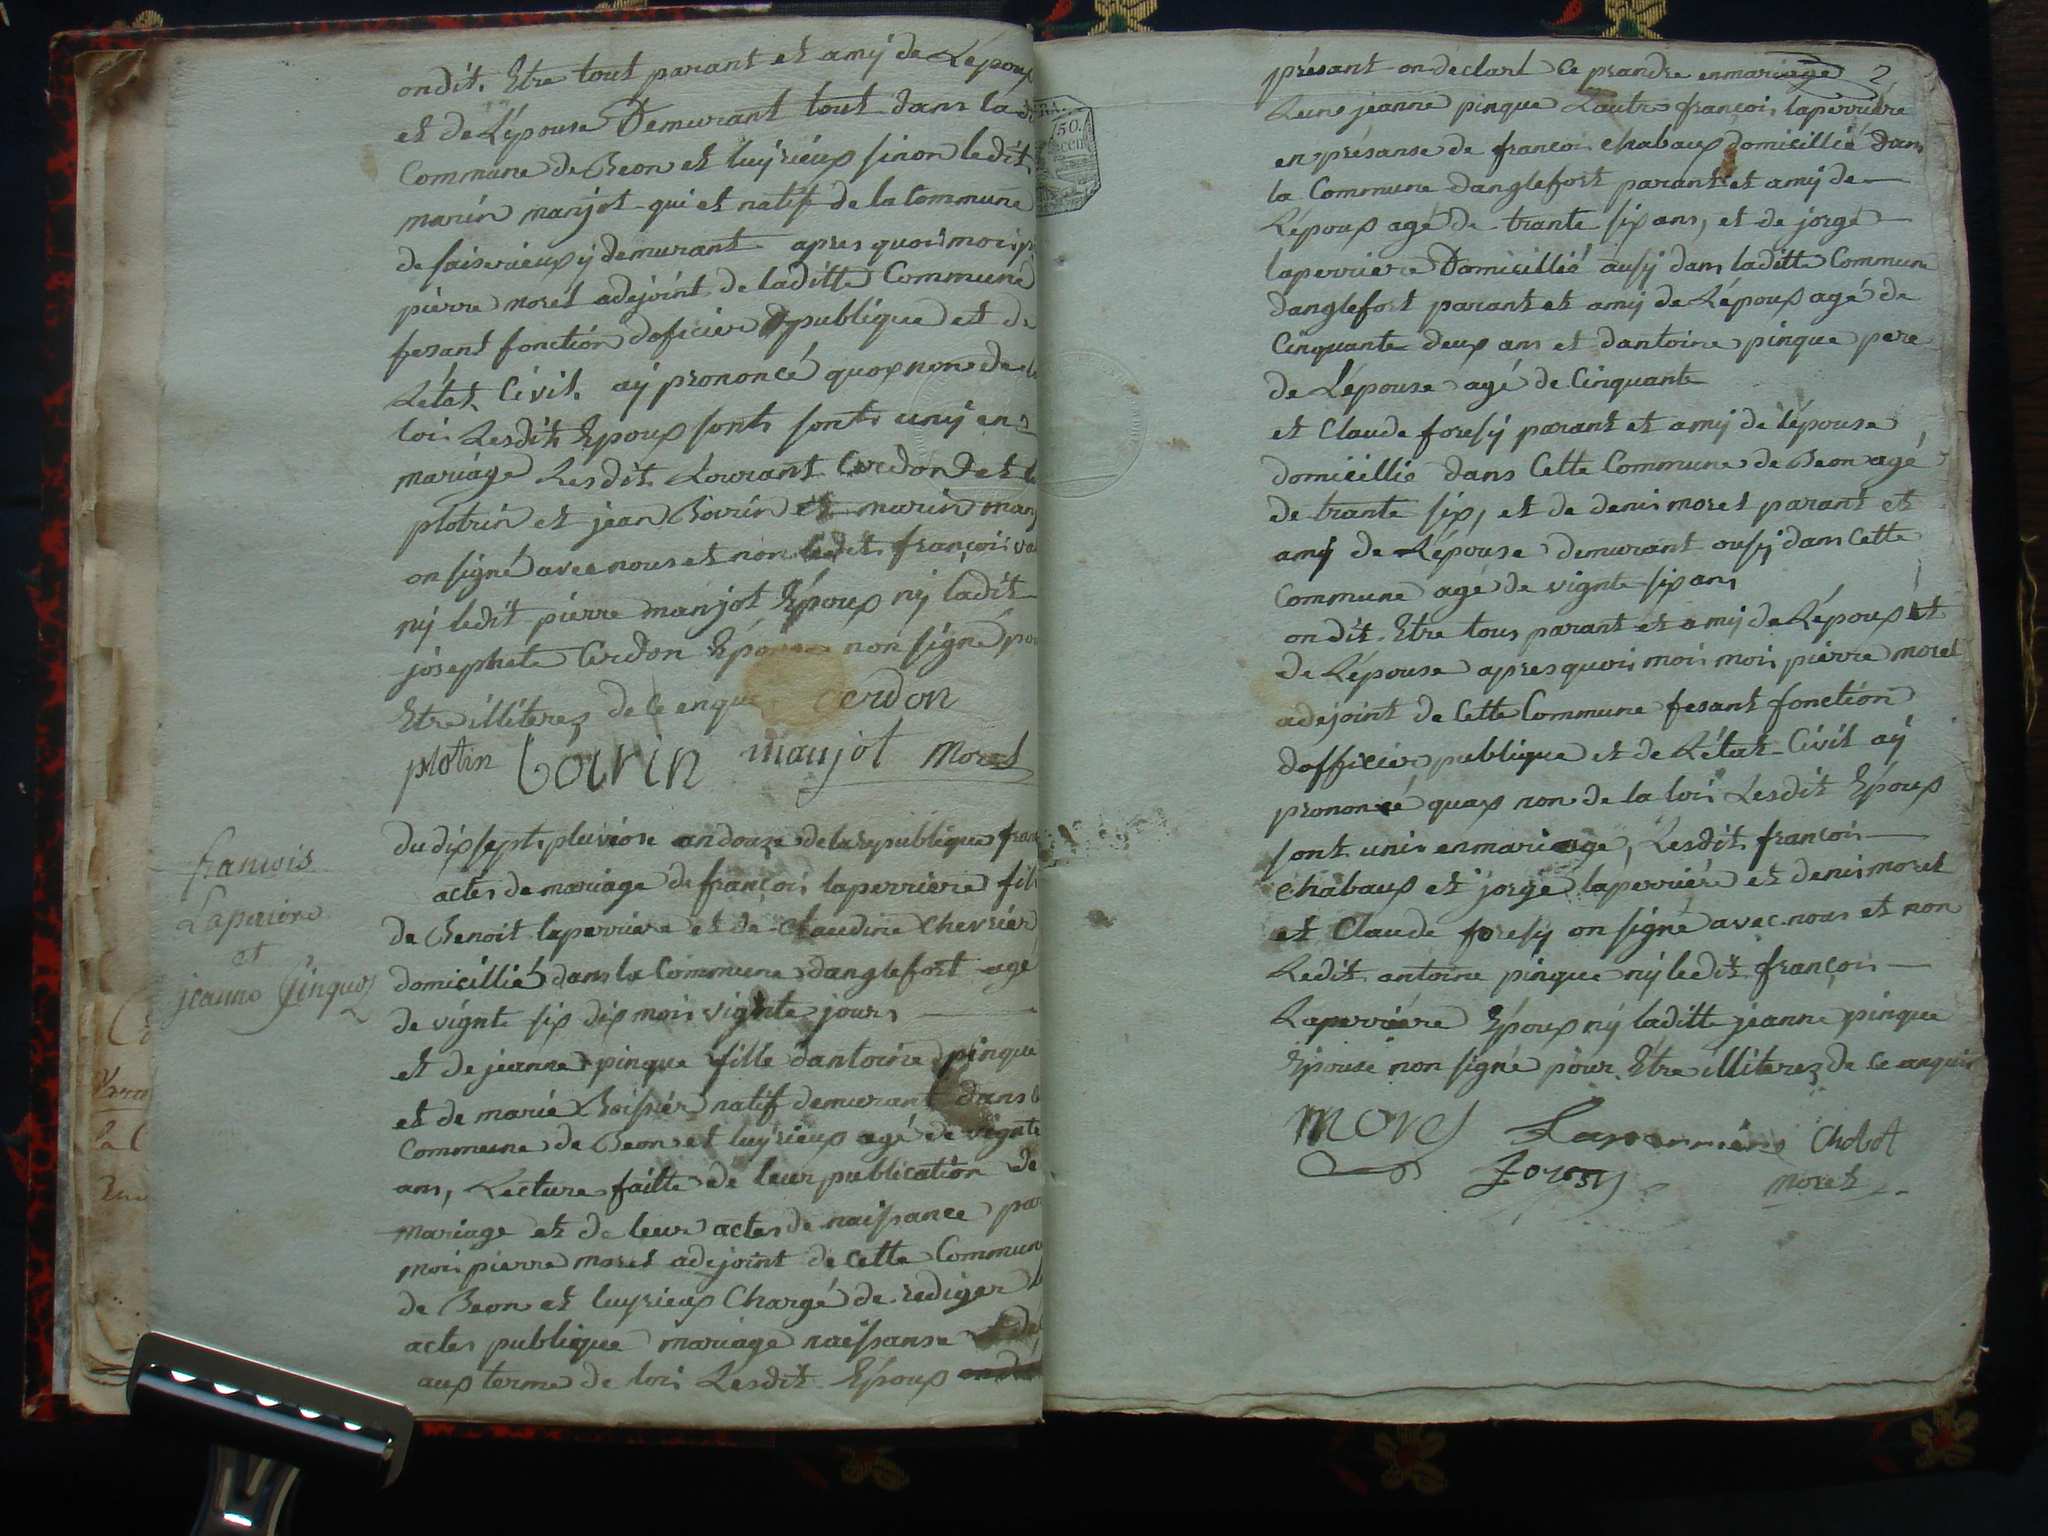 on dit. Etre tout parant et amÿ de Lépoux
et de Lépouse Demurant tout dans la
Commune de Beon et luÿrieux sinon ledit
marin manjot qui et natif de la Commune
de ÿ demurant apres quoi moi
pierre moret adejoint de laditte Commune
fesant fonction doficier publique et de
Létat Civil. aÿ prononcé quox non de la
loi Lesdit Epoux sont sont unÿ en
mariage Lesdit Lourant Cerdon et
plotrin et jean Boirin et marin
on signé avec nous et non ledit françois
nÿ ledit pierre manjot Epoux nÿ ladit
josephete Cerdon non signé
Etre illiterez de ce cerdon
plotin boirin manjot Moret
francois
Laperiere
et
jeanne Pinquez
du dix sept pluviose an douze de la republique
actes de mariage de françois laperriere
de Benoit laperriere et de Claudine Chevrier
domicillié dans la Commune danglefort agé
de vignte six dix mois vignte jours
et de jeanne pinque fille dantoine pinque
et de marie Boissier natif demurant dans
Commune de Beon et luyrieux agé de vignte
ans, Lecture faitte de leur publication de
mariage et de leur actes de naissance par
moi pierre moret adejoint de cette Commune
de Beon et luyrieux Chargé de rediger
actes publique mariage naissanse
aux terme de loi Lesdit Epoux
présant on déclaré Ce prandre en mariage 2
Lune jeanne pinque Lautre françois laperriere
en présanse de francois chabaux domicillié dans
la Commune danglefort parant et amÿ de
Lépoux agé de trante six ans, et de jorge
laperriere Domicillié ausÿ dans laditte Commune
danglefort parant et amÿ de Lépoux agé de
Cinquante deux ans et dantoine pinque pere
de Lépouse agé de Cinquante
et Claude foresÿ parant et amÿ de lépouse
domicillié dans Cette Commune de Beon agé
de trante six, et de denis moret parant et
amÿ de Lépouse demurant ousÿ dans Cette
Commune agé de vignte six ans
on dit. Etre tous parant et amÿ de Lépoux et
de Lépouse apres quoi moi moi pierre moret
adejoint de Cette Commune fesant fonction
dofficier publique et de Létat Civil aÿ
prononcé quax non de la loi Lesdit Epoux
sont unis en mariage, Lesdit françois
chabaux et jorge laperriére et denis moret
et Claude foresÿ on signé avec nous et non
Ledit antoine pinque nÿ ledit françois
Laperriére Epoux nÿ laditte jeanne pinque
Epouse non signé pour Etre illiterez de ce
moret Laperriére Chobot
foresy moret